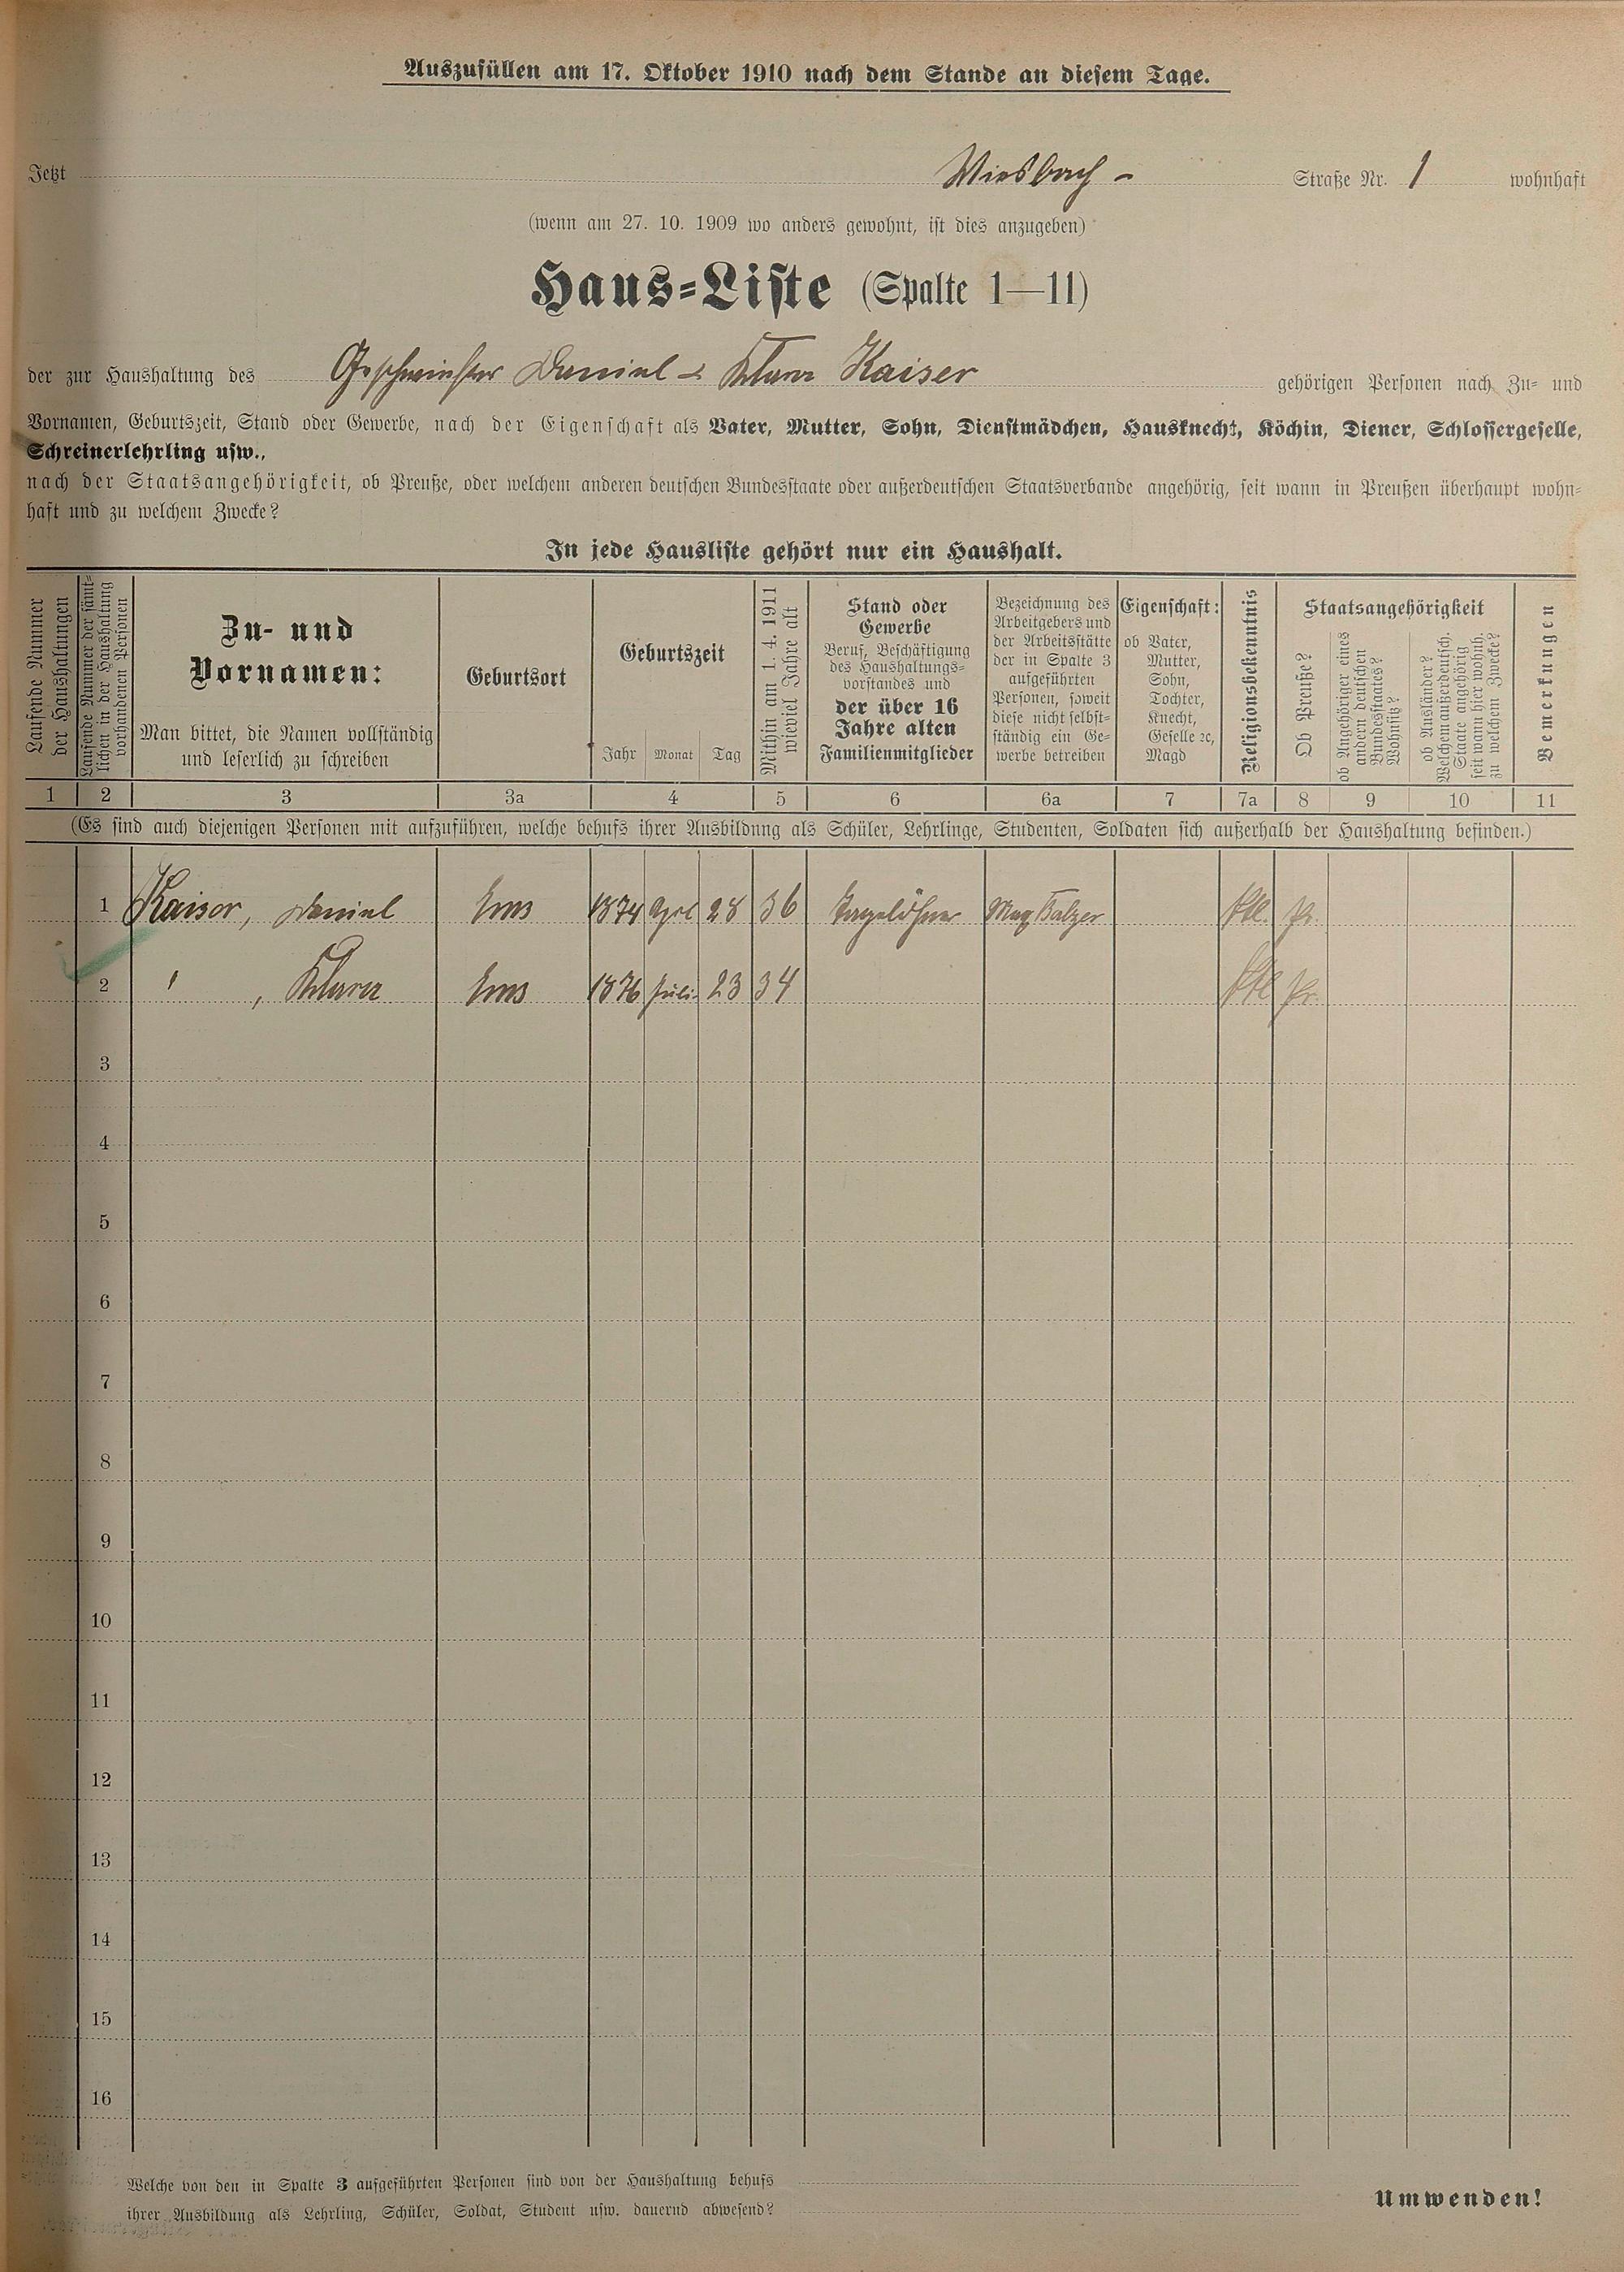 Auszufüllen am 17. Oktober 1910 nach dem Stande an diesem Tage.
Jetzt Wiesbach- Straße Nr. 1 wohnhaft
(wenn am 27. 10. 1909 wo anders gewohnt, ist dies anzugeben)
Haus-Liste (Spalte 1—11)
der zur Haushaltung des Geschwister Daniel & Klara Kaiser gehörigen Personen nach Zu- und
Vornamen, Geburtszeit, Stand oder Gewerbe, nach der Eigenschaft als Vater, Mutter, Sohn, Dienstmädchen, Hausknecht, Köchin, Diener, Schlossergeselle,
Schreinerlehrling usw.,
nach der Staatsangehörigkeit, ob Preuße, oder welchem anderen deutschen Bundesstaate oder außerdeutschen Staatsverbande angehörig, seit wann in Preußen überhaupt wohn-
haft und zu welchem Zwecke?
In jede Hausliste gehört nur ein Haushalt.
Laufende Nummer
der Haushaltungen
Laufende Nummer der sämt-
lichen in der Haushaltung
vorhandenen Personen
Zu- und
Vornamen:
Man bittet, die Namen vollständig
und leserlich zu schreiben
Geburtsort
Geburtszeit
Jahr Monat Tag
Mithin am 1. 4. 1911
wieviel Jahre alt
Stand oder
Gewerbe
Beruf, Beschäftigung
des Haushaltungs-
vorstandes und
der über 16
Jahre alten
Familienmitglieder
Bezeichnung des
Arbeitgebers und
der Arbeitsstätte
der in Spalte 3
aufgeführten
Personen, soweit
diese nicht selbst-
ständig ein Ge-
werbe betreiben
Eigenschaft:
ob Vater,
Mutter,
Sohn,
Tochter,
Knecht,
Geselle ꝛc,
Magd
Religionsbekenntnis
Staatsangehörigkeit
Ob Preuße?
ob Angehöriger eines
andern deutschen
Bundesstaates?
Wohnsitz?
ob Ausländer?
Welchem außerdeutsch.
Staate angehörig
seit wann hier wohnh.
zu welchem Zwecke?
Bemerkungen
1 2 3 3a 4 5 6 6a 7 7a 8 9 10 11
(Es sind auch diejenigen Personen mit aufzuführen, welche behufs ihrer Ausbildung als Schüler, Lehrlinge, Studenten, Soldaten sich außerhalb der Haushaltung befinden.)
1 Kaiser, Daniel Ems 1874 Apl 28 36 Tagelöhner Balzer Ktl. Pr.
2 " , Klara Ems 1876 Juli 23 34 Ktl Pr.
3
4
5
6
7
8
9
10
11
12
13
14
15
16
Welche von den in Spalte 3 aufgeführten Personen sind von der Haushaltung behufs
ihrer Ausbildung als Lehrling, Schüler, Soldat, Student usw. dauernd abwesend?
Umwenden!